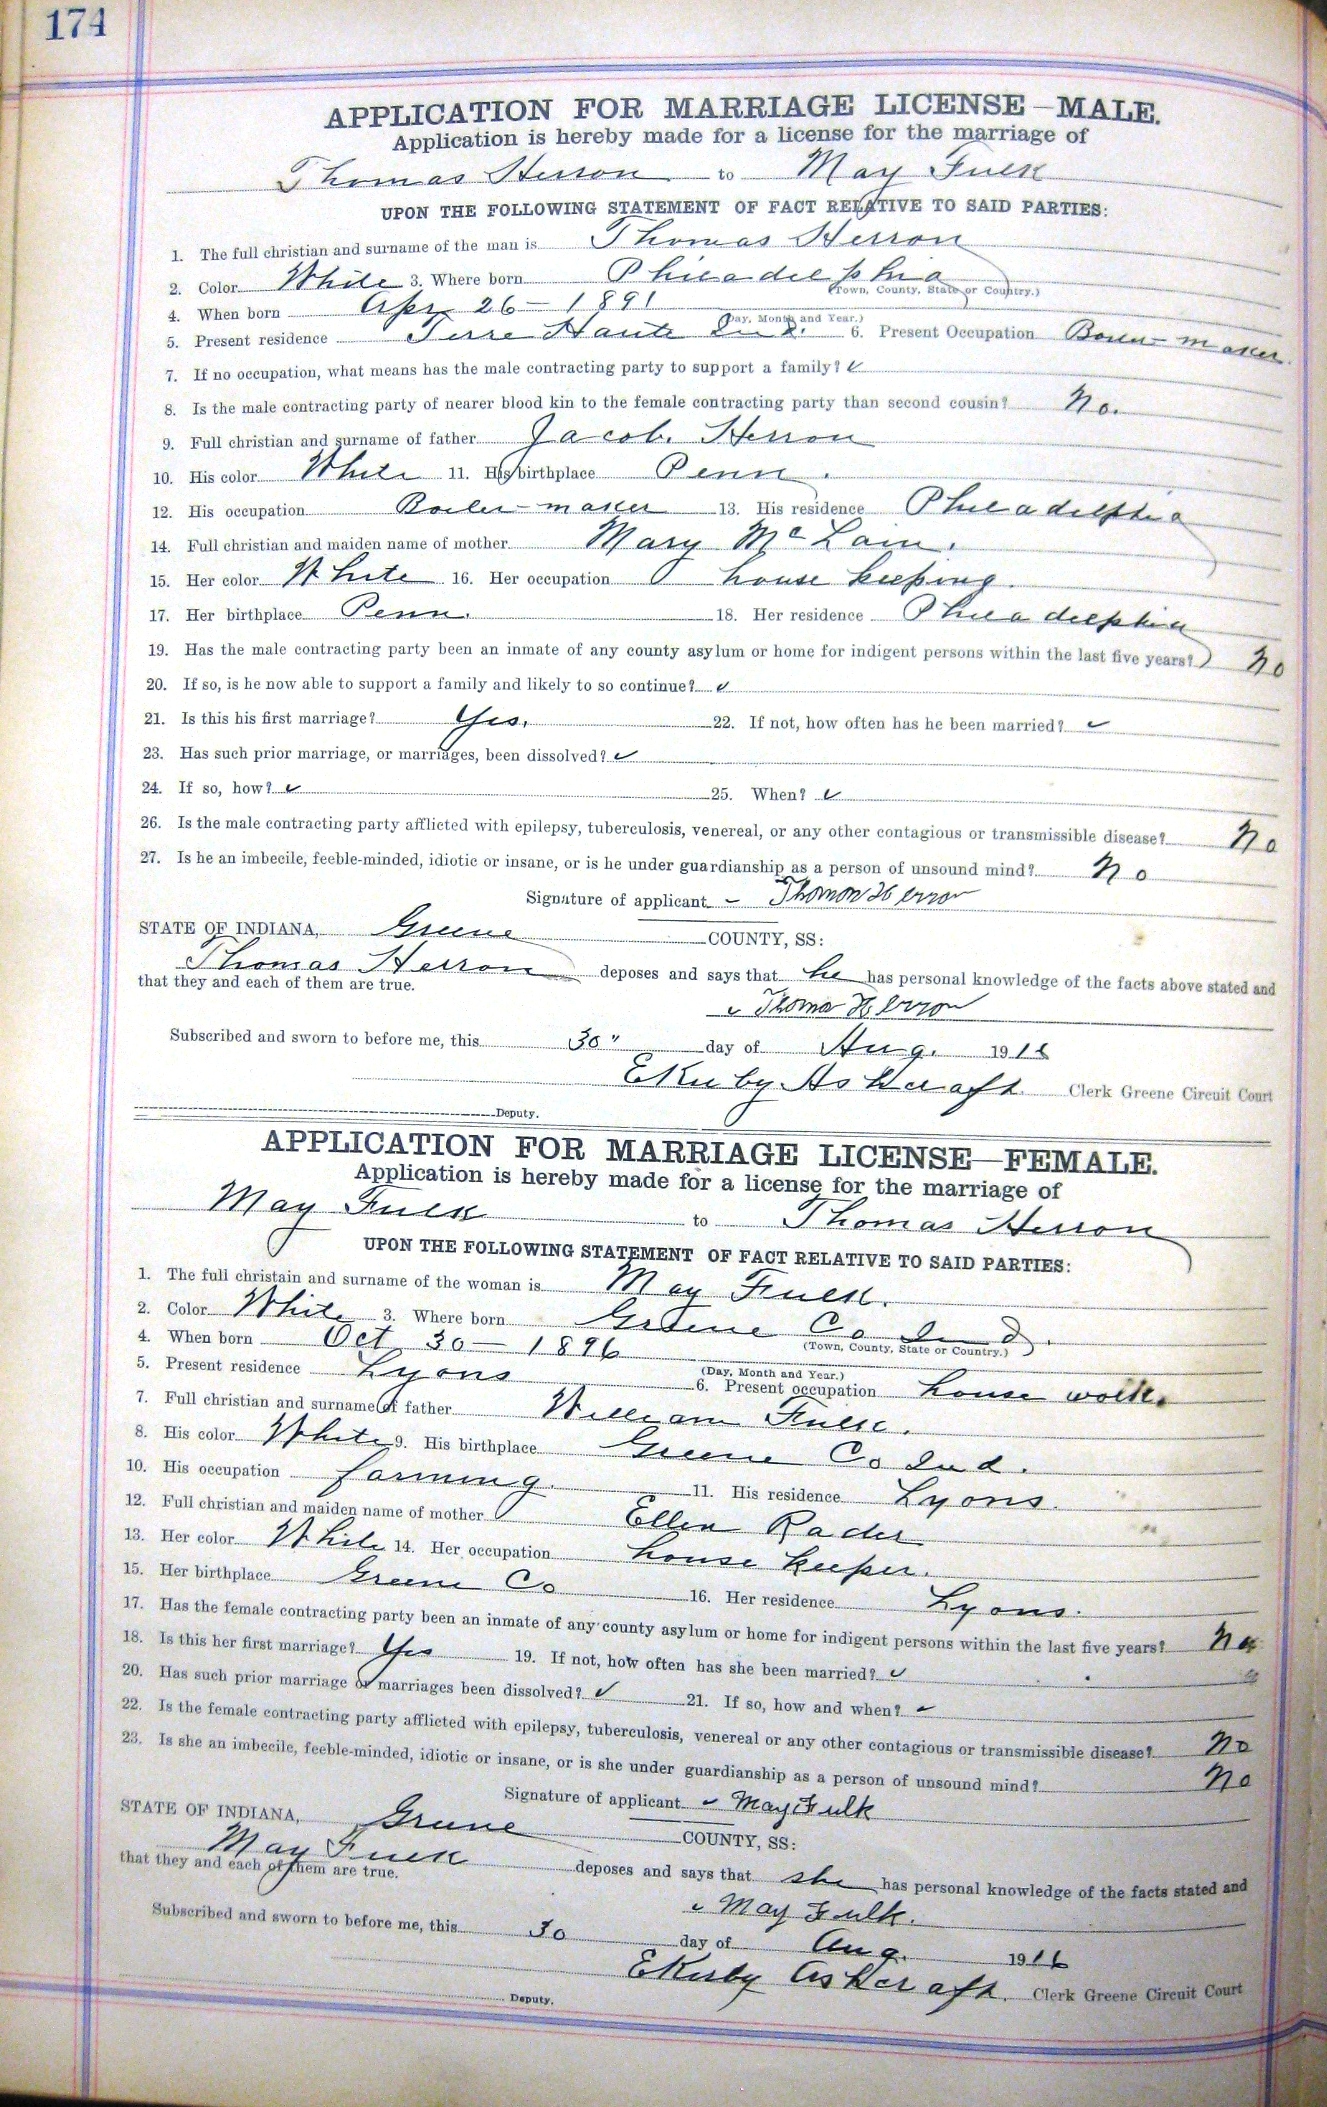 174
APPLICATION FOR MARRIAGE LICENSE—MALE.
Application is hereby made for a license for the marriage of
Thomas Herron to May Fulk
UPON THE FOLLOWING STATEMENT OF FACT RELATIVE TO SAID PARTIES:
1. The full christian and surname of the man is Thomas Herron
2. Color White 3. Where born Philadelphia
(Town, County, State or Country.)
4. When born Apr 26 – 1891
(Day, Month and Year.)
5. Present residence Terre Haute Ind. 6. Present Occupation Boiler-maker.
7. If no occupation, what means has the male contracting party to support a family? ✓
8. Is the male contracting party of nearer blood kin to the female contracting party than second cousin? No.
9. Full christian and surname of father Jacob Herron
10. His color White 11. His birthplace Penn.
12. His occupation Boiler-maker 13. His residence Philadelphia
14. Full christian and maiden name of mother Mary McLain.
15. Her color White 16. Her occupation house keeping.
17. Her birthplace Penn. 18. Her residence Philadelphia
19. Has the male contracting party been an inmate of any county asylum or home for indigent persons within the last five years? No
20. If so, is he now able to support a family and likely to so continue? ✓
21. Is this his first marriage? Yes. 22. If not, how often has he been married? ✓
23. Has such prior marriage, or marriages, been dissolved? ✓
24. If so, how? ✓ 25. When? ✓
26. Is the male contracting party afflicted with epilepsy, tuberculosis, venereal, or any other contagious or transmissible disease? No
27. Is he an imbecile, feeble-minded, idiotic or insane, or is he under guardianship as a person of unsound mind? No
Signature of applicant ✓ Thomas Herron
STATE OF INDIANA, Greene COUNTY, SS:
Thomas Herron deposes and says that he has personal knowledge of the facts above stated and
that they and each of them are true.
✓ Thomas Herron
Subscribed and sworn to before me, this 30" day of Aug. 1916
EKirby Ashcraft Clerk Greene Circuit Court
Deputy.
APPLICATION FOR MARRIAGE LICENSE—FEMALE.
Application is hereby made for a license for the marriage of
May Fulk to Thomas Herron
UPON THE FOLLOWING STATEMENT OF FACT RELATIVE TO SAID PARTIES:
1. The full christain and surname of the woman is May Fulk.
2. Color White 3. Where born Greene Co Ind.
(Town, County, State or Country.)
4. When born Oct 30 – 1896
(Day, Month and Year.)
5. Present residence Lyons 6. Present occupation house work.
7. Full christian and surname of father William Fulk.
8. His color White 9. His birthplace Greene Co Ind.
10. His occupation farming. 11. His residence Lyons.
12. Full christian and maiden name of mother Ellen Rader
13. Her color White 14. Her occupation house keeper.
15. Her birthplace Greene Co 16. Her residence Lyons.
17. Has the female contracting party been an inmate of any county asylum or home for indigent persons within the last five years? No
18. Is this her first marriage? Yes 19. If not, how often has she been married? ✓
20. Has such prior marriage or marriages been dissolved? ✓ 21. If so, how and when? ✓
22. Is the female contracting party afflicted with epilepsy, tuberculosis, venereal or any other contagious or transmissible disease? No
23. Is she an imbecile, feeble-minded, idiotic or insane, or is she under guardianship as a person of unsound mind? No
Signature of applicant ✓ May Fulk
STATE OF INDIANA, Greene COUNTY, SS:
May Fulk deposes and says that she has personal knowledge of the facts stated and
that they and each of them are true.
✓ May Fulk.
Subscribed and sworn to before me, this 30 day of Aug. 1916
EKirby Ashcraft. Clerk Greene Circuit Court
Deputy.